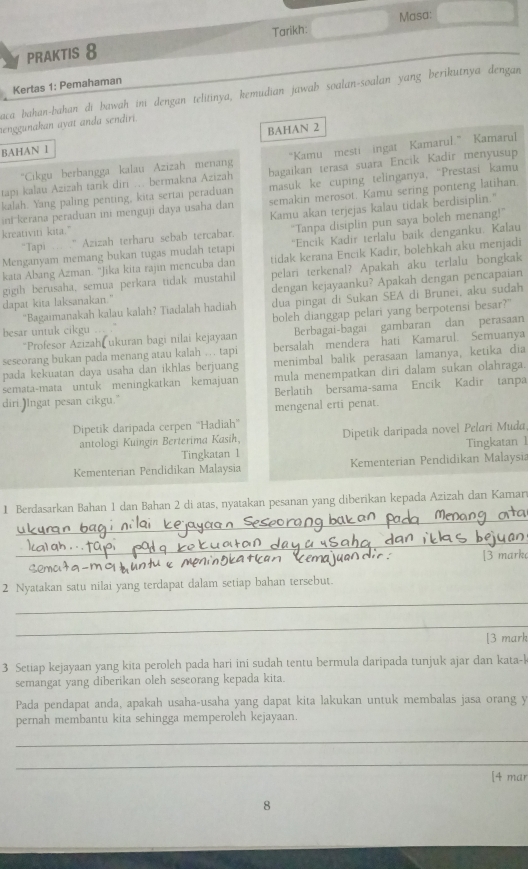 Tarikh:
Masa:
PRAKTIS 8
Kertas 1: Pemahaman
aca bahan-bahan di bawah ini dengan telitinya, kemudian jawab soalan-soalan yang berikutnya dengan
enggunakan ayat anda sendiri.
BAHAN 1
"Cikgu berbangga kalau Azizah menang
tapi kalau Azizah tarik diri ... bermakna Azizah
kalah. Yang paling penting, kita sertai peraduan
ini kerana peraduan ini menguji daya usaha dan
kreativiti kita."
"Tapi ... " Azizah terharu sebab tercabar.
Menganyam memang bukan tugas mudah tetapi
kata Abang Azman. "Jika kita rajin mencuba dan
gigih berusaha, semua perkara tidak mustahil
dapat kita laksanakan."
"Bagaimanakah kalau kalah? Tiadalah hadiah
besar untuk cikgu ... "
"Profesor Azizah, ukuran bagi nilai kejayaan
seseorang bukan pada menang atau kalah ... tapi
pada kekuatan daya usaha dan ikhlas berjuang
semata-mata untuk meningkatkan kemajuan
diri. Ingat pesan cikgu."
Dipetik daripada cerpen "Hadiah"
antologi Kuingin Berterima Kasih,
Tingkatan 1
Kementerian Pendidikan Malaysia
BAHAN 2
"Kamu mesti ingat Kamarul." Kamarul
bagaikan terasa suara Encik Kadir menyusup
masuk ke cuping telinganya. "Prestasi kamu
semakin merosot. Kamu sering ponteng latihan.
Kamu akan terjejas kalau tidak berdisiplin."
"Tanpa disiplin pun saya boleh menang!"
"Encik Kadir terlalu baik denganku. Kalau
tidak kerana Encik Kadir, bolehkah aku menjadi
pelari terkenal? Apakah aku terlalu bongkak
dengan kejayaanku? Apakah dengan pencapaian
dua pingat di Sukan SEA di Brunei, aku sudah
boleh dianggap pelari yang berpotensi besar?"
Berbagai-bagai gambaran dan perasaan
bersalah mendera hati Kamarul. Semuanya
menimbal balik perasaan lamanya, ketika dia
mula menempatkan diri dalam sukan olahraga.
Berlatih bersama-sama Encik Kadir tanpa
mengenal erti penat.
Dipetik daripada novel Pelari Muda,
Tingkatan 1
Kementerian Pendidikan Malaysia
1 Berdasarkan Bahan 1 dan Bahan 2 di atas, nyatakan pesanan yang diberikan kepada Azizah dan Kamar
ukuran bagi nilai kejayaan seseorang bukan pada menang ata
kalah...tapi pada kekuatan daya usaha dan iklas bejuan
semata-mata untuk meningkatkan kemajuan dir.
[3 mark
2 Nyatakan satu nilai yang terdapat dalam setiap bahan tersebut.
[3 mark
3 Setiap kejayaan yang kita peroleh pada hari ini sudah tentu bermula daripada tunjuk ajar dan kata-k
semangat yang diberikan oleh seseorang kepada kita.
Pada pendapat anda, apakah usaha-usaha yang dapat kita lakukan untuk membalas jasa orang y
pernah membantu kita sehingga memperoleh kejayaan.
[4 mar
8